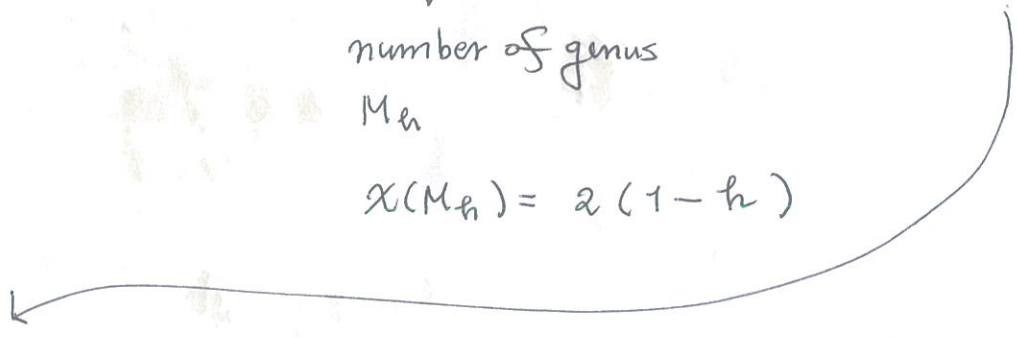 number of genus
M_h
χ(M_h) = 2(1-h)